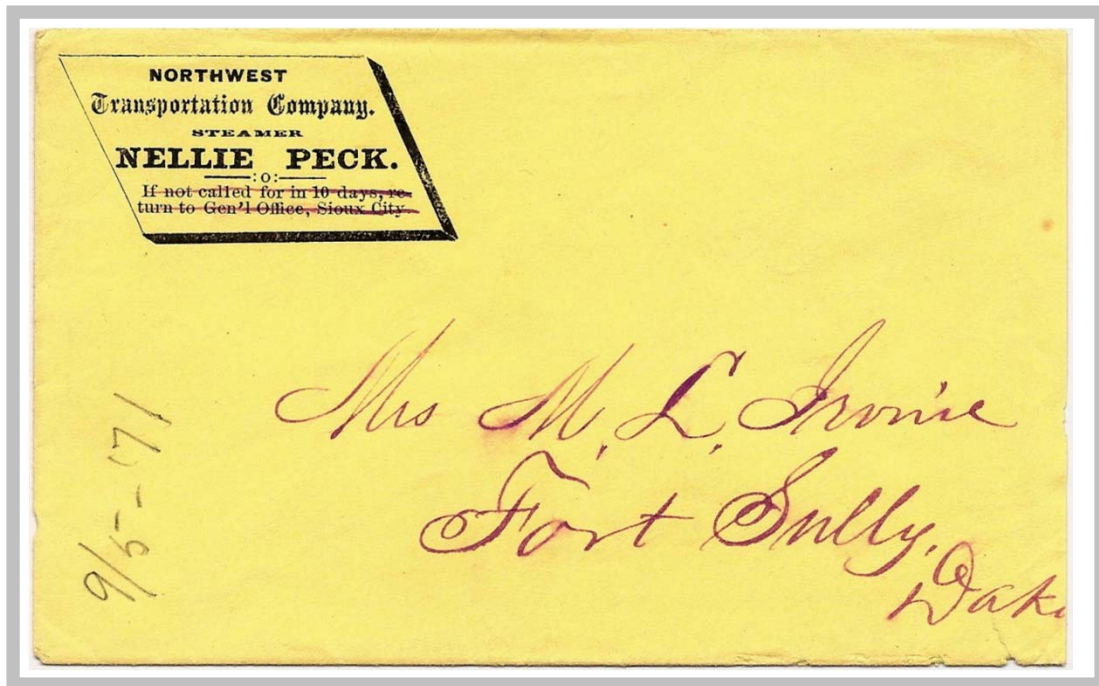 NORTHWEST
Transportation Company.
STEAMER
NELLIE PECK.
:o:
If not called for in 10 days, re-
turn to Gen'l Office, Sioux City.
Mrs M. L. Irvine
Fort Sully,
Dak
9/5-'71